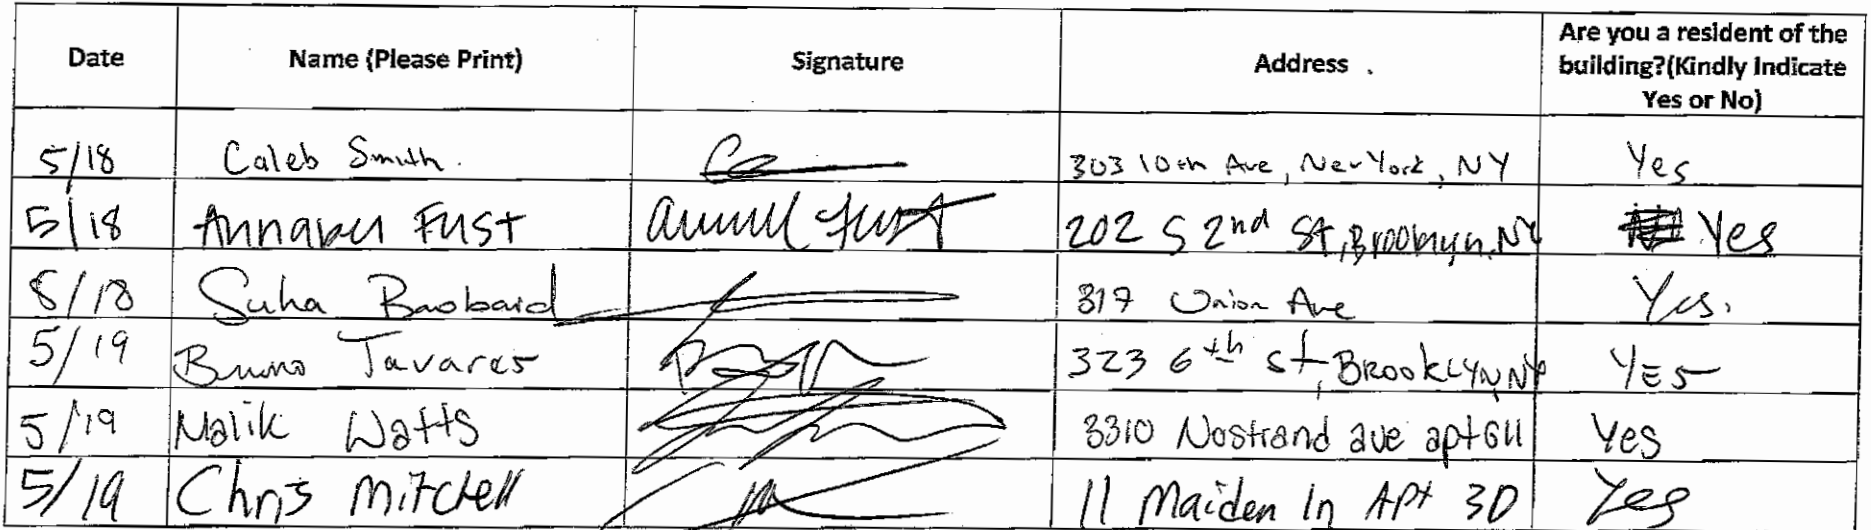 Date Name (Please Print) Signature Address Are you a resident of the building?(Kindly Indicate Yes or No)
5/18 Caleb Smith. 303 10th Ave, New York, NY Yes
5/18 Annabel Fust 202 S 2nd St, Brooklyn, NY Yes
5/18 Suha Baobaid 317 Union Ave Yes.
5/19 Bruno Tavares 323 6th St, BROOKLYN, NY YES
5/19 Malik Watts 3310 Nostrand ave apt 611 Yes
5/19 Chris Mitchell 11 Maiden ln APt 3D Yes